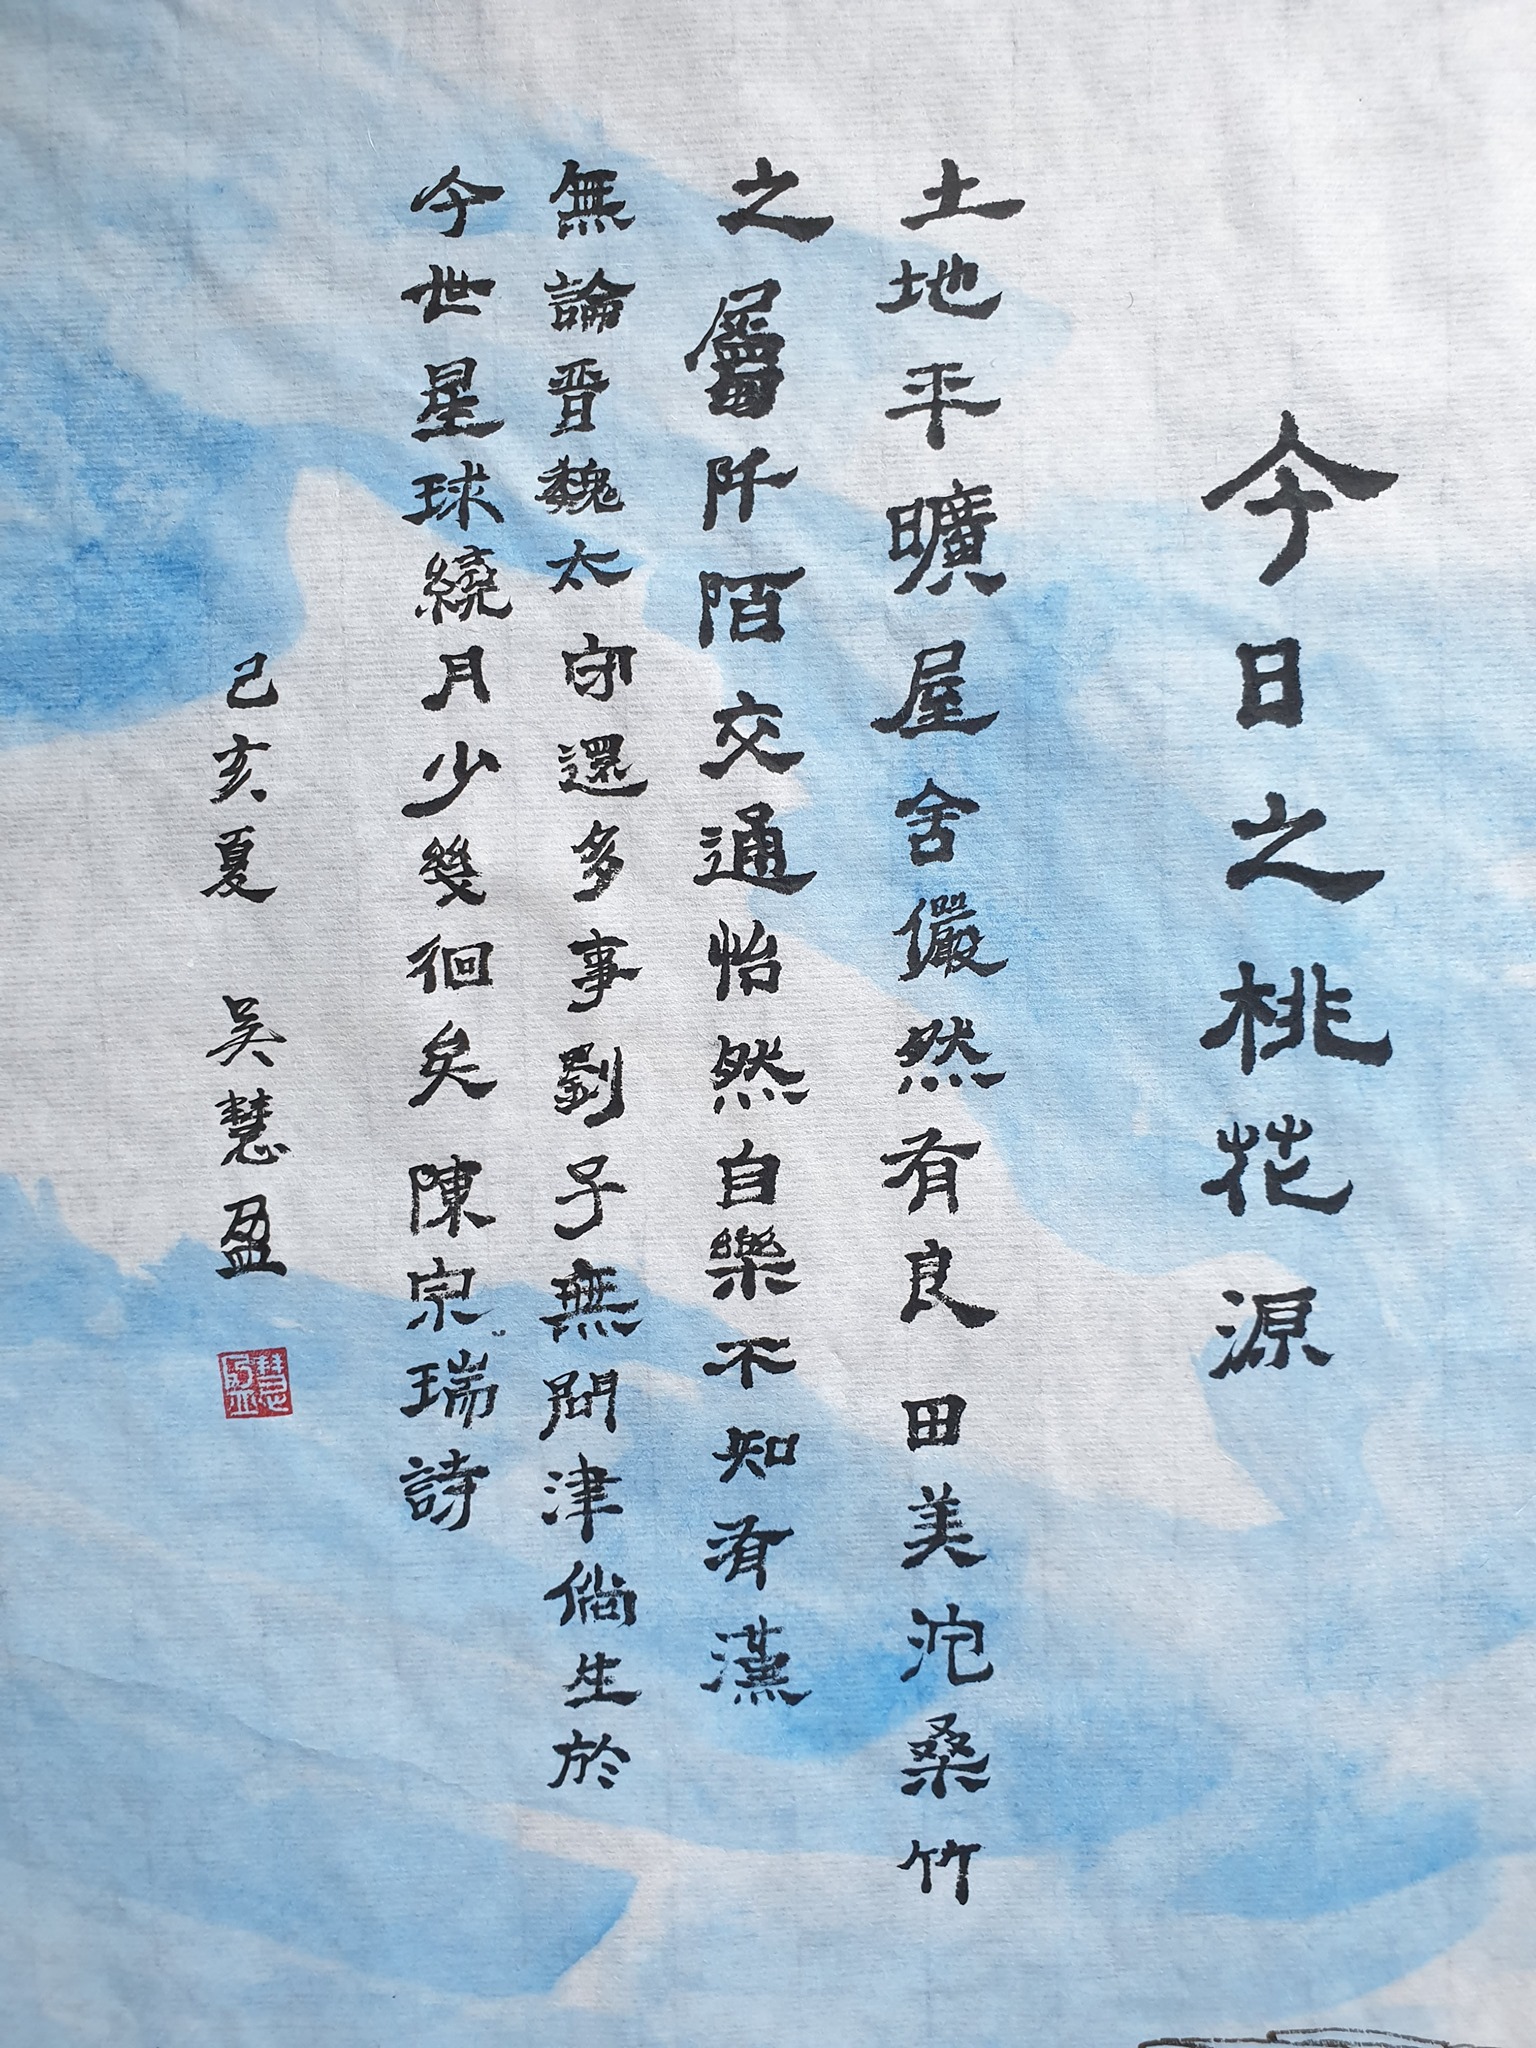 今日之桃花源
土地平曠屋舍儼然有良田美沱桑竹
之屬阡陌交通怡然自樂不知有漢
無論晉魏太守還多事劉子無問津倘生於
今世星球繞月少幾徊矣陳宗瑞詩
己亥夏 吳慧盈
慧盈